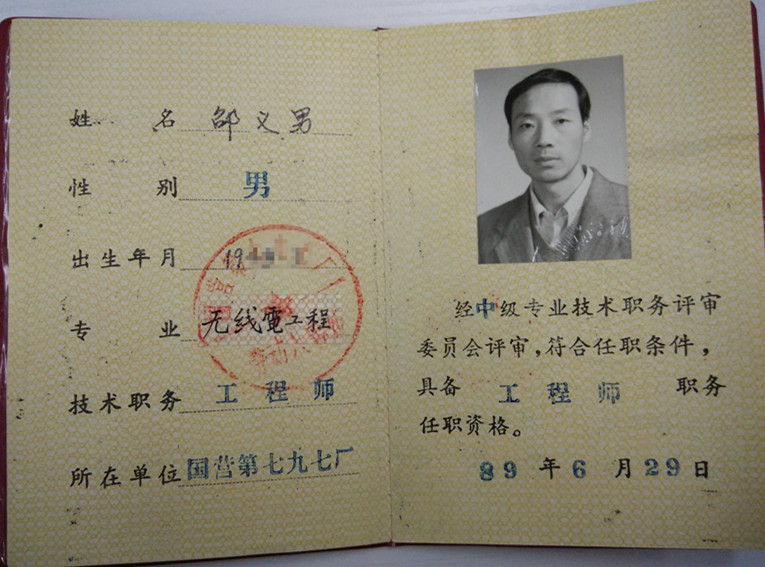 姓名 邵义男
性别 男
出生年月 19
专业 无线電工程
技术职务 工程师
所在单位 国营第七九七厂
经中级专业技术职务评审
委员会评审,符合任职条件,
具备 工程师 职务
任职资格。
89年6月29日